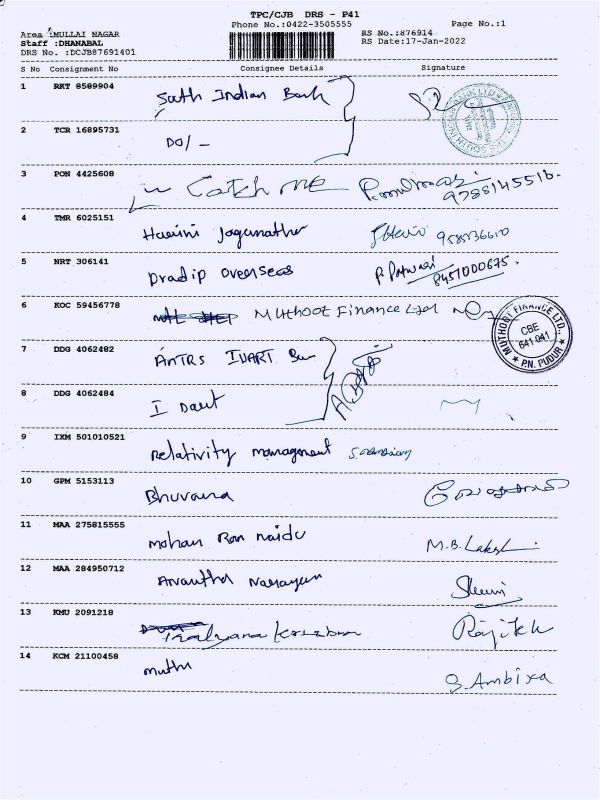 TPC/CJB DRS - P41
Phone No.:0422-3505555
Page No.:1
Area :MULLAI NAGAR
Staff :DHANABAL
DRS No. :DCJB87691401
RS No.:876914
RS Date:17-Jan-2022
S No Consignment No Consignee Details Signature
1 RKT 8589904 South Indian Bank
2 TCR 16895731 DO/-
3 PON 4425608 Catch ME 9788145516.
4 TMR 6025151 Harini Jaganathan
5 NRT 306141 Pradip overseas P. Patwari 8451000675.
6 KOC 59456778 Muthoot Finance Ltd
MUTHOOT FINANCE LTD.,
CBE
641 041
P.N. PUDUR
7 DDG 4062482
8 DDG 4062484
9 IXM 501010521 Relativity management
10 GPM 5153113 Bhuvana
11 MAA 275815555 mohan Ram naidu M.B.Lakshmi
12 MAA 284950712 Anantha Narayan
13 KMU 2091218
14 KCM 21100458 muthu S.Ambika